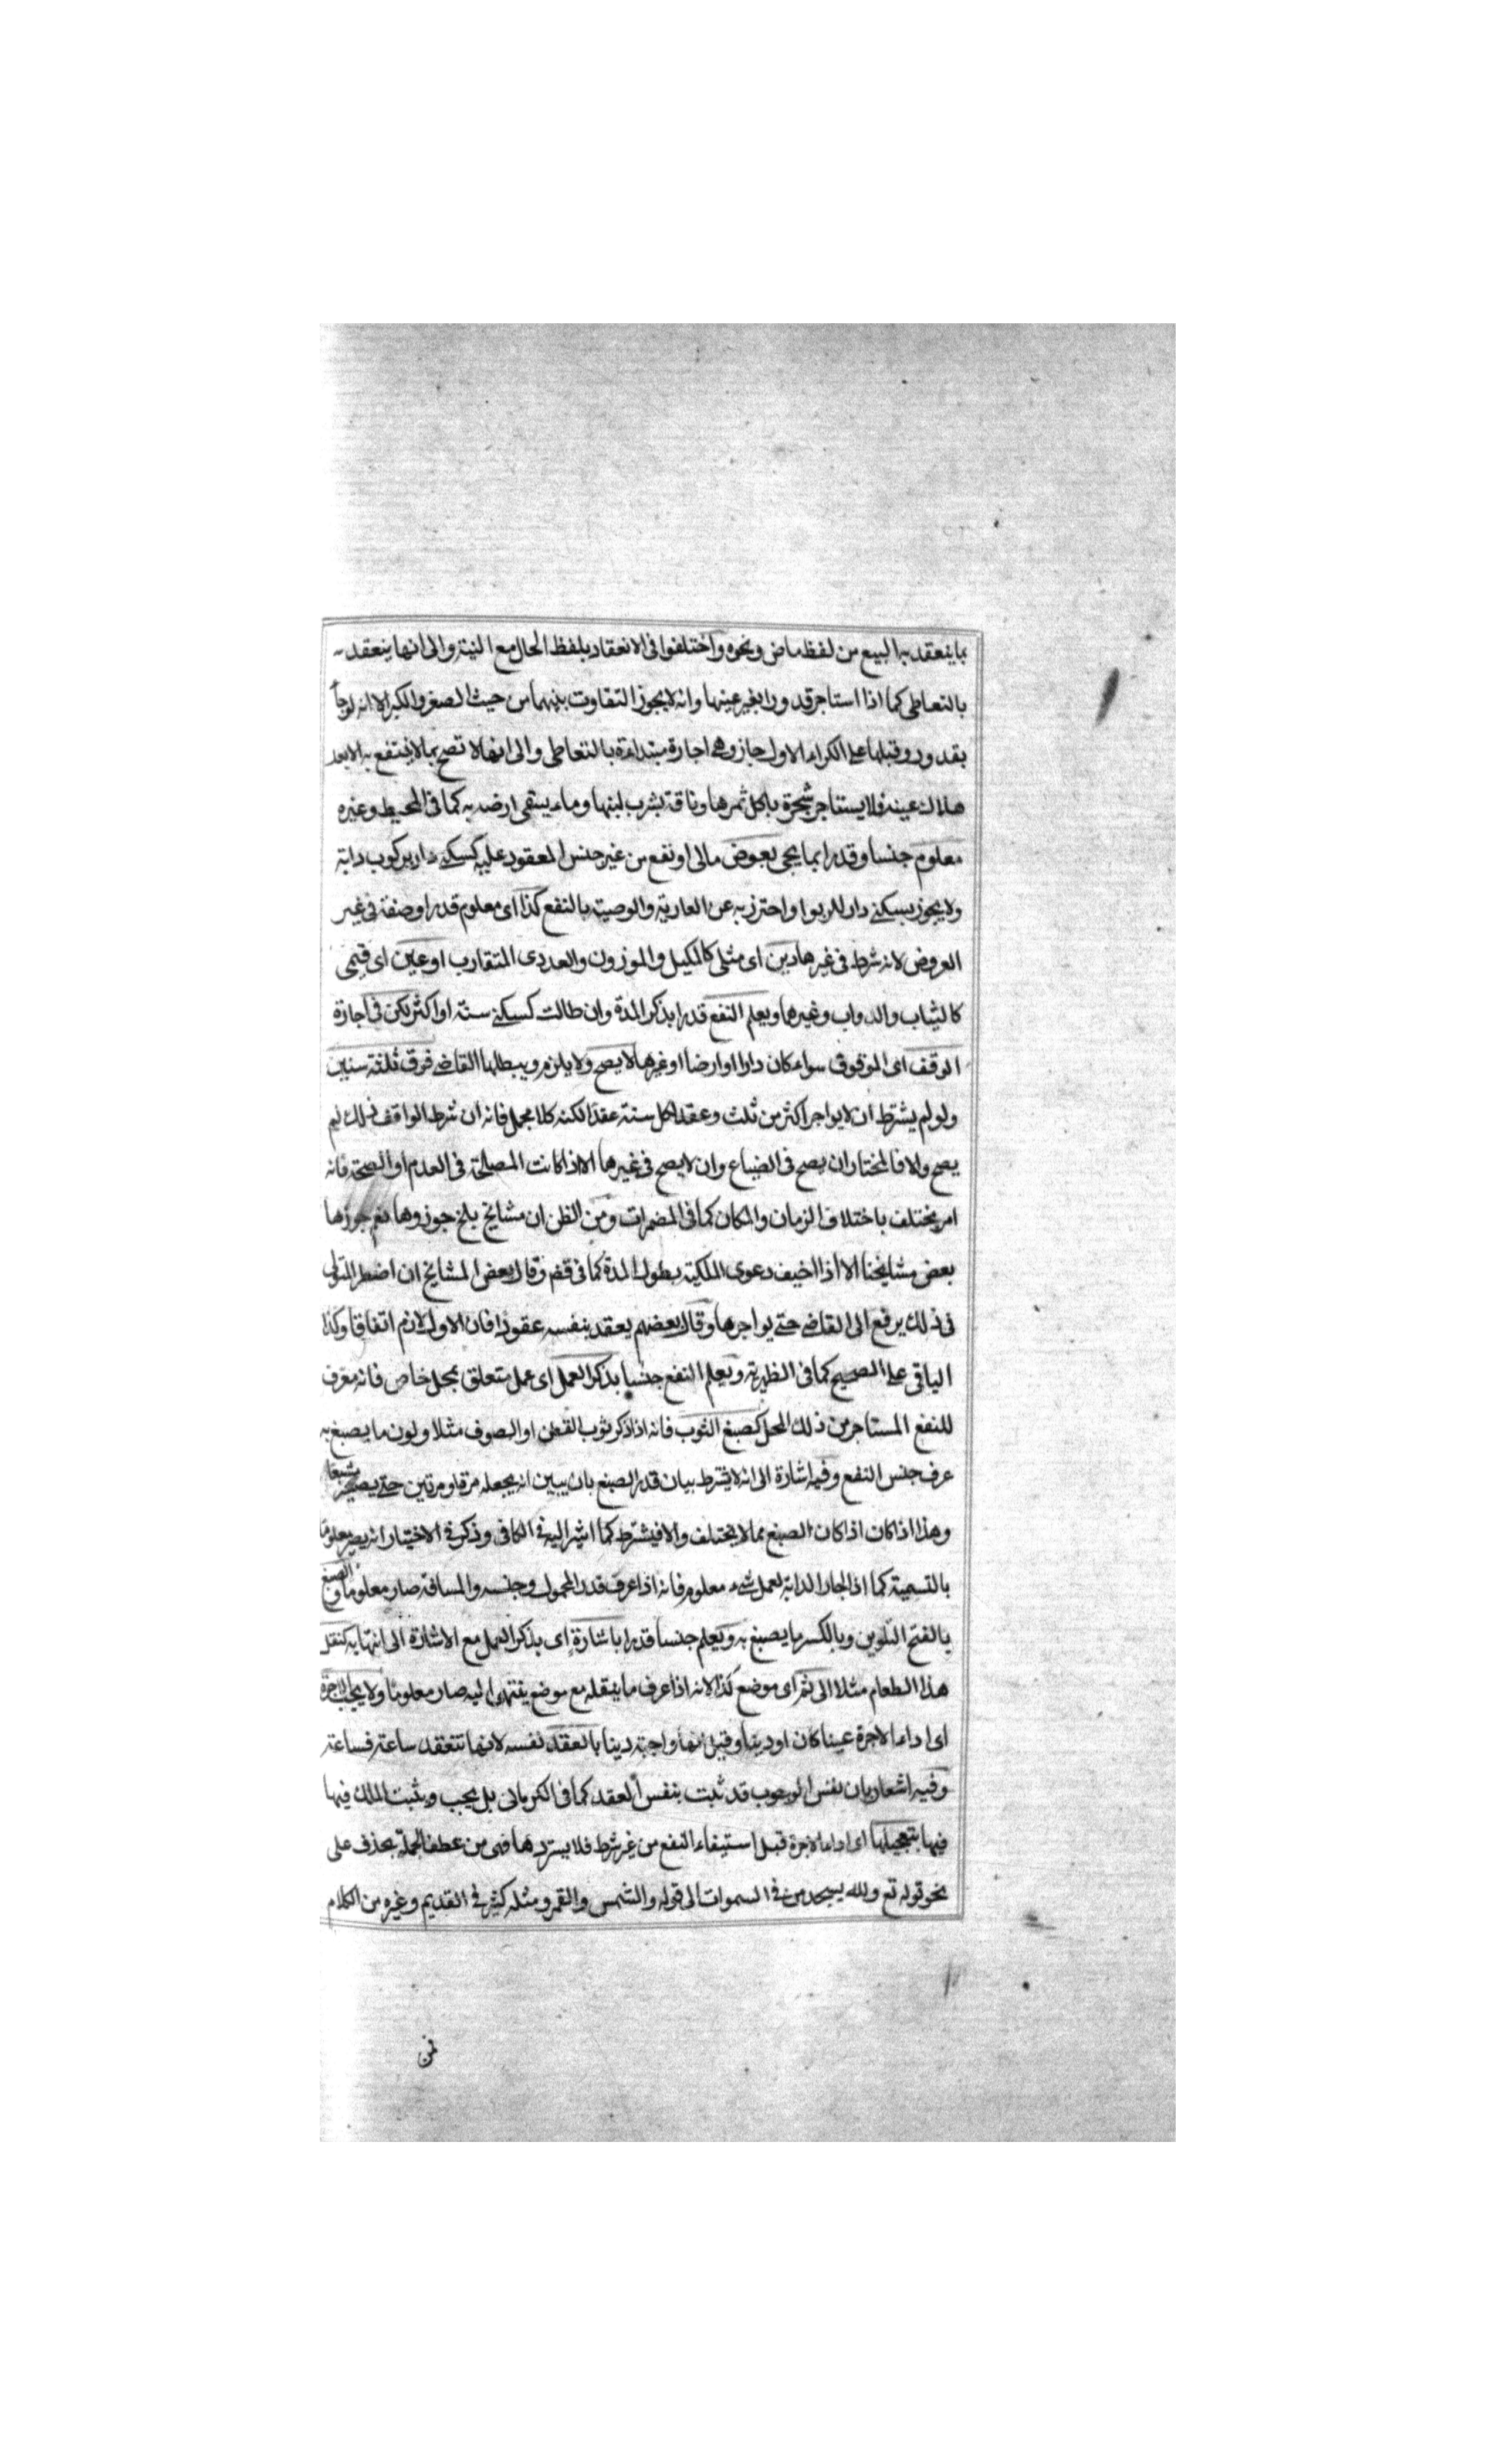 بما ينعقد به البيع من لفظ ماض ونحوه واختلفوا في الانعقاد بلفظ الحال مع النية والى انها ينعقد
بالتعاطى كما اذا استاجر قدورا بغير عينها وانه لا يجوز التفاوت بينهما من حيث الصغر والكبر الا انه لو جاء
بقدور وقبلها على الكراء الاول جاز وهي اجارة مبتداءة بالتعاطى والى انها لا تصح بما لا ينتفع به الا بعد
هلاك عينه فلا يستاجر شجرة باكل ثمرها وناقة بشرب لبنها وماء يسقى ارضه به كما في المحيط وغيره
معلوم جنسا وقدرا بما يجى بعوض مالى او نفع من غير جنس المعقود عليه كسكنى دار بركوب دابة
ولا يجوز بسكنى دار للربوا واحترز به عن العارية والوصية بالنفع كذا اى معلوم قدرا وصفة في غير
العروض لانه شرط في غيرها دين اى مثلى كالمكيل والموزون والعددى المتقارب او عين اى قيمى
كالثياب والدواب وغيرها ويعلم النفع قدرا بذكر المدة وان طالت كسكنى سنة او اكثر لكن في اجارة
الوقف اى الموقوف سواء كان دارا او ارضا او غيرها لا يصح ولا يلزم ويبطلها القاضى فوق ثلثة سنين
ولو لم يشترط ان لا يواجر اكثر من ثلث وعقد لكل سنة عقدا لكنه كلام مجمل فانه ان شرط الواقف ذلك لم
يصح والا فالمختار ان يصح في الضياع وان لا يصح في غيرها الا اذا كانت المصلحة في العدم او الصحة فانه
امر يختلف باختلاف الزمان والمكان كما في المضمرات ومن الظن ان مشايخ بلخ جوزوها نعم جوزها
بعض مشايخنا الا اذا اخيف دعوى الملكية بطول المدة كما في وقفه وقال بعض المشايخ ان اضطر المتولى
في ذلك يرفع الى القاضى حتى يواجرها وقال بعضهم يعقد بنفسه عقودا فان الاول لازم اتفاقا وكذا
الباقى على الصحيح كما في الظهيرية ويعلم النفع جنسا بذكر العمل اى عمل متعلق بمحل خاص فانه معرف
للنفع المستاجر من ذلك المحل كصبغ الثوب فانه اذا ذكر ثوب القطن او الصوف مثلا ولون ما يصبغ به
عرف جنس النفع وفيه اشارة الى انه لا يشترط بيان قدر الصبغ بان يبين انه يجعله مرة او مرتين حتى يصير مشبعا
وهذا اذا كان اذا كان الصبغ مما لا يختلف والا فيشترط كما اشير اليه في الكافى وذكر في الاختيار انه يصير معلوما
بالتسمية كما اذا اجار الدابة لعمل شىء معلوم فانه اذا عرف قدر المحمول وجنسه والمسافة صار معلوما والصبغ
بالفتح التلوين وبالكسر ما يصبغ به ويعلم جنسا قدرا باشارة اى بذكر العمل مع الاشارة الى انتهايه كنقل
هذا الطعام مثلا الى ثمر اى موضع كذا لانه اذا عرف ما ينقله مع موضع ينتهى اليه صار معلوما ولا يجب الاجرة
اى اداء الاجرة عينا كان او دينا وقيل انها واجبة دينا بالعقد نفسه لانها تنعقد ساعة فساعة
وفيه اشعار بان نفس الوجوب قد ثبت بنفس العقد كما في الكرمانى بل يجب ويثبت الملك فيها
فيها بتعجيلها اى اداء الاجرة قبل استيفاء النفع من غير شرط فلا يستردها فهى من عطف الجملة بحذف على
نحو قوله تع ولله يسجد من في السموات الى قوله والشمس والقمر ومثله كثير في القديم وغيره من الكلام
فمن